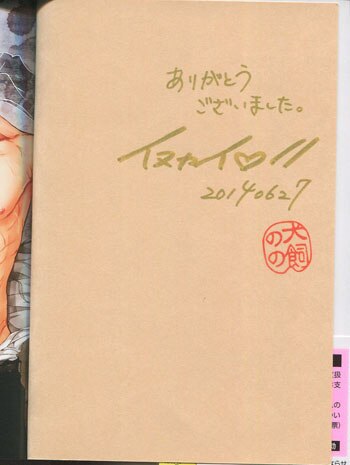 ありがとう
ございました。
イヌカイ♡ノノ
20140627
犬飼
のの
扱
支
の
い